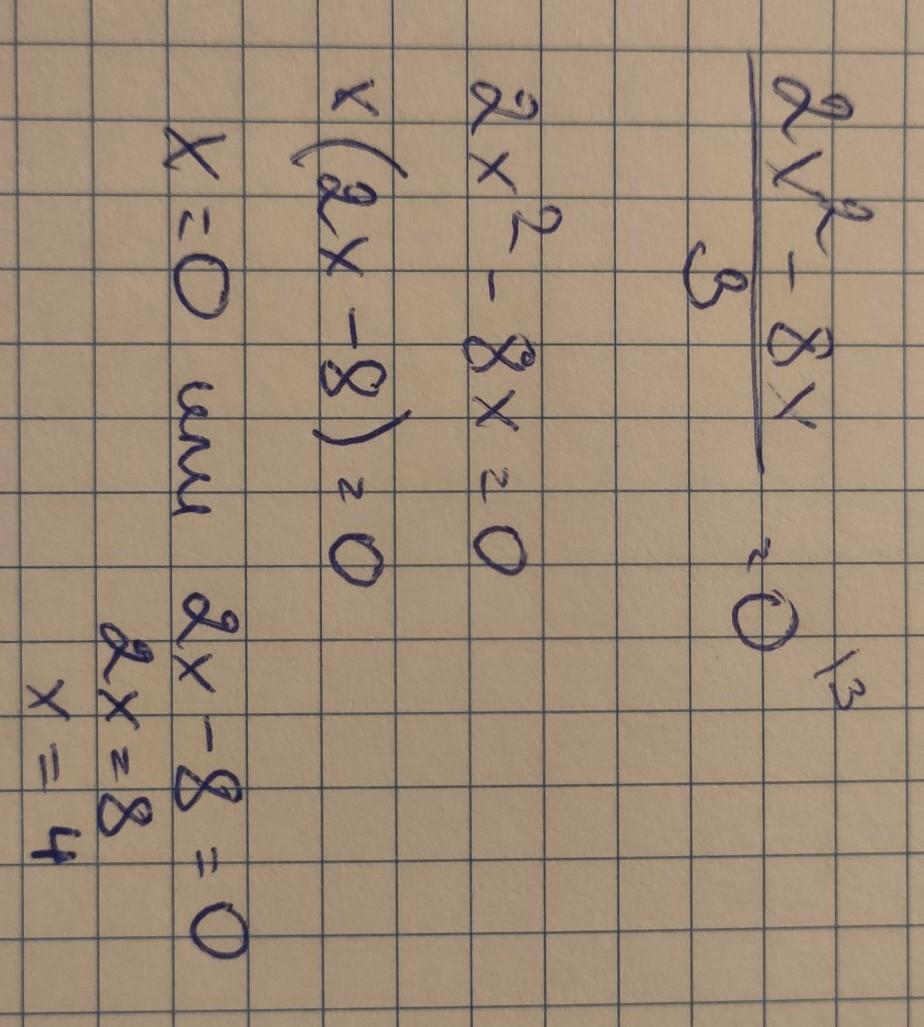 (2x² - 8x)/3 = 0 \3
2x² - 8x = 0
x(2x - 8) = 0
x = 0 или 2x - 8 = 0
2x = 8
x = 4